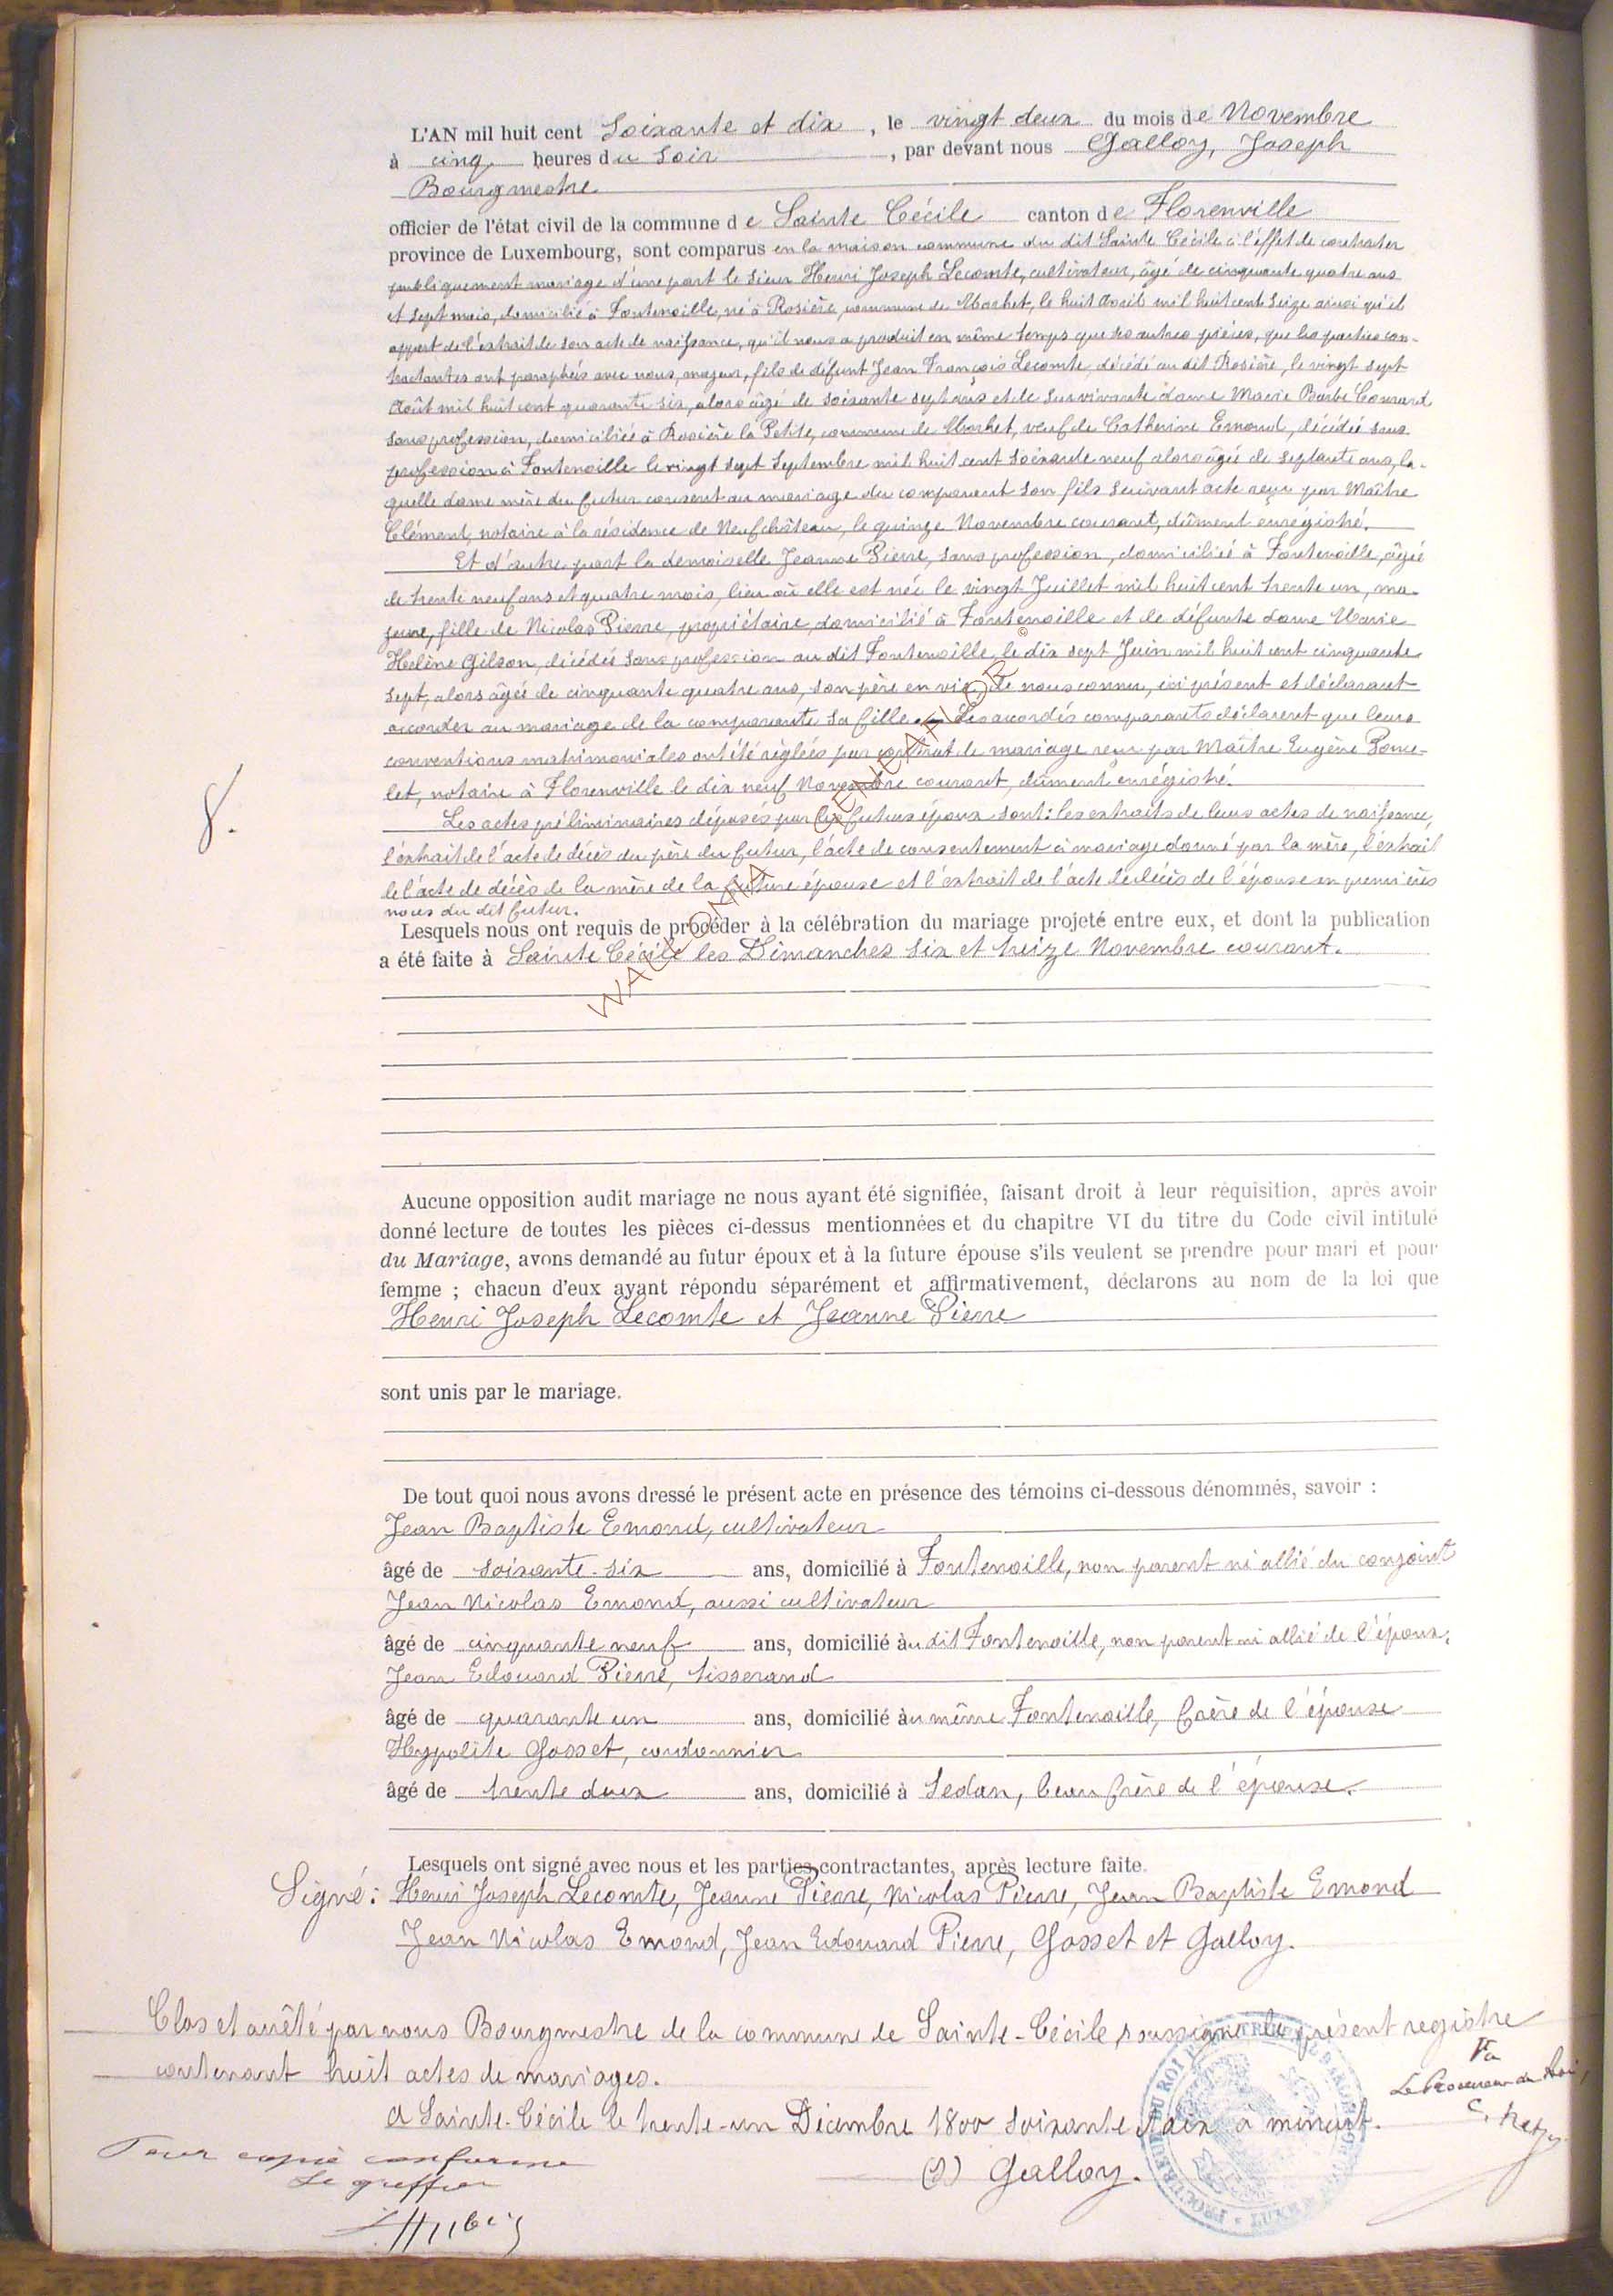 L'AN mil huit cent Soixante et dix, le vingt deux du mois de Novembre
à cinq heures du Soir, par devant nous Galloy, Joseph
Bourgmestre
officier de l'état civil de la commune de Sainte Cécile canton de Florenville
province de Luxembourg, sont comparus en la maison commune du dit Sainte Cécile à l'effet de contracter
publiquement mariage d'une part le Sieur Henri Joseph Lecomte, cultivateur, âgé de cinquante quatre ans
et sept mois, domicilié à Fontenoille, né à Rosière, commune de Morhet, le huit Avril mil huit cent seize ainsi qu'il
appert de l'extrait de son acte de naissance, qu'il nous a produit en même temps que les autres pièces, que les parties con-
tractantes ont paraphées avec nous, majeur, fils de défunt Jean François Lecomte, décédé au dit Rosière, le vingt sept
Août mil huit cent quarante six, alors âgé de soixante sept ans et de survivante dame Marie Barbe Conrard
sans profession, domiciliée à Rosière la Petite, commune de Morhet, veuf de Catherine Emond, décédée sans
profession à Fontenoille le vingt sept Septembre mil huit cent soixante neuf alors âgée de septante ans, la-
quelle dame mère du futur consent au mariage du comparant son fils suivant acte reçu par Maître
Clément, notaire à la résidence de Neufchâteau, le quinze Novembre courant, dûment enrégistré.
Et d'autre part la demoiselle Jeanne Pierre, sans profession, domiciliée à Fontenoille, âgée
de trente neuf ans et quatre mois, lieu où elle est née le vingt Juillet mil huit cent trente un, ma-
jeure, fille de Nicolas Pierre, propriétaire, domicilié à Fontenoille et de défunte dame Marie
Hélène Gilson, décédée sans profession au dit Fontenoille, le dix sept Juin mil huit cent cinquante
sept, alors âgée de cinquante quatre ans, son père en vie, de nous connu, ici présent et déclarant
accorder au mariage de la comparante sa fille. Les accordés comparants déclarent que leurs
conventions matrimoniales ont été réglées par contrat de mariage reçu par Maître Eugène Ponce-
let, notaire à Florenville le dix neuf Novembre courant, dûment enrégistré.
8.
Les actes préliminaires déposés par les futurs époux sont: les extraits de leurs actes de naissance,
l'extrait de l'acte de décès du père du futur, l'acte de consentement à mariage donné par la mère, l'extrait
de l'acte de décès de la mère de la future épouse et l'extrait de l'acte de décès de l'épouse en premières
noces du dit futur.
Lesquels nous ont requis de procéder à la célébration du mariage projeté entre eux, et dont la publication
a été faite à Sainte Cécile les Dimanches six et treize Novembre courant.
© WALLONIA GENEAFLOR
Aucune opposition audit mariage ne nous ayant été signifiée, faisant droit à leur réquisition, après avoir
donné lecture de toutes les pièces ci-dessus mentionnées et du chapitre VI du titre du Code civil intitulé
du Mariage, avons demandé au futur époux et à la future épouse s'ils veulent se prendre pour mari et pour
femme ; chacun d'eux ayant répondu séparément et affirmativement, déclarons au nom de la loi que
Henri Joseph Lecomte et Jeanne Pierre
sont unis par le mariage.
De tout quoi nous avons dressé le présent acte en présence des témoins ci-dessous dénommés, savoir :
Jean Baptiste Emond, cultivateur
âgé de soixante-six ans, domicilié à Fontenoille, non parent ni allié du conjoint
Jean Nicolas Emond, aussi cultivateur
âgé de cinquante neuf ans, domicilié audit Fontenoille, non parent ni allié de l'époux,
Jean Edouard Pierre, tisserand
âgé de quarante un ans, domicilié au même Fontenoille, frère de l'épouse
Hypolite Gosset, cordonnier
âgé de trente deux ans, domicilié à Sedan, beau frère de l'épouse.
Lesquels ont signé avec nous et les parties contractantes, après lecture faite.
Signé: Henri Joseph Lecomte, Jeanne Pierre, Nicolas Pierre, Jean Baptiste Emond
Jean Nicolas Emond, Jean Edouard Pierre, Gosset et Galloy.
Clos et arrêté par nous Bourgmestre de la commune de Sainte-Cécile, soussigné le présent registre
contenant huit actes de mariages.
A Sainte-Cécile le trente-un Décembre 1800 soixante et dix à minuit.
(S) Galloy.
Vu
Le Procureur du Roi,
Pour copie conforme
Le greffier
PROCUREUR DU ROI